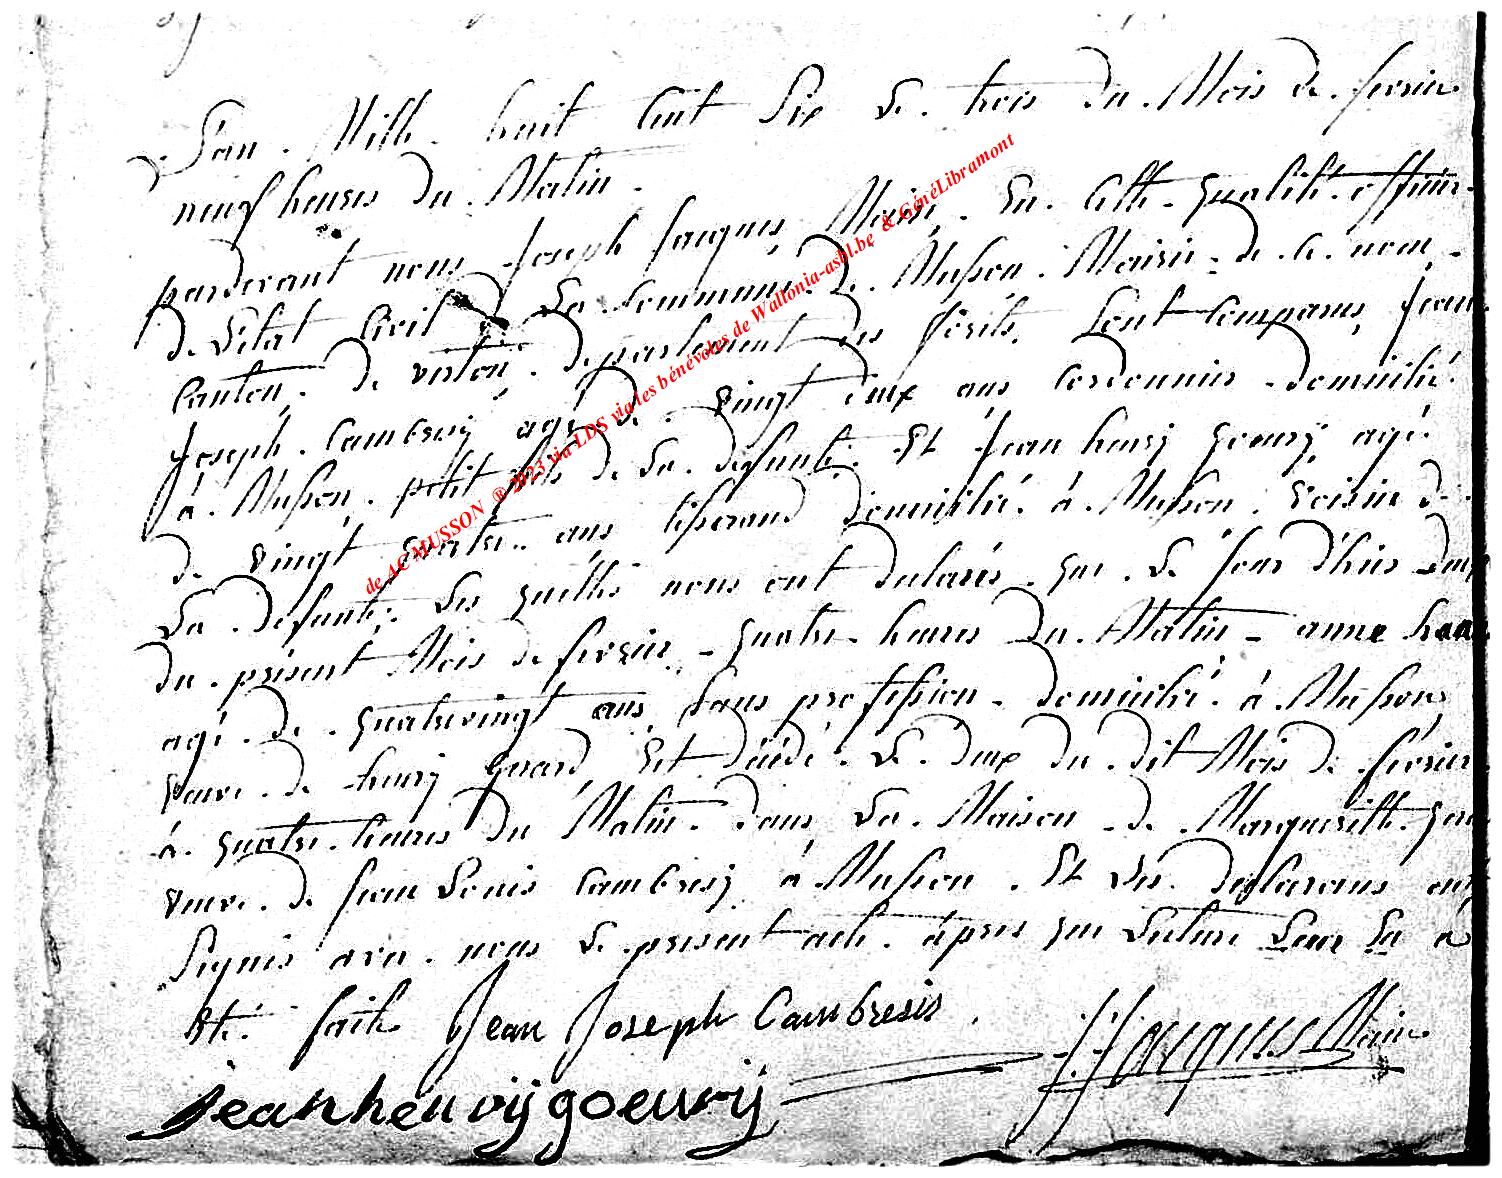 L'an Mille huit Cent Six Le trois du Mois de fevrier
neuf heures du Matin
pardevant nous Joseph Jacques Maire En Cette qualité officier
de L'état Civil de La Commune de Musson Mairie de Ce nom
Canton de virton departement des forêts Sont Comparus Jean
Joseph Cambresij agé de vingt deux ans Cordonnier domicilié
à Musson petit fils de La defunte Et Jean henrij goeurij agé
de vingt quatre ans tisserand domicilié à Musson voisin de
La defunte Les quelles nous ont declarés que Le Jour D'hier deux
du présent Mois de fevrier quatre heures du Matin anne
agé de quatrevingt ans Sans profession domicilié à Musson
veuve de henrij gerard Est Décédé Le deux du dit Mois de fevrier
à quatre heures du Matin dans La Maison de Margueritte
veuve de Jean Louis Cambresij à Musson Et Les declarans ont
Signés avec nous Le present acte après que Lecture Leur En a
Eté faite Jean Joseph Cambresis
J Jacques Maire
jean henrij goeurij
de AC MUSSON ® 2023 via LDS via les bénévoles de Wallonia-asbl.be & GénéLibramont